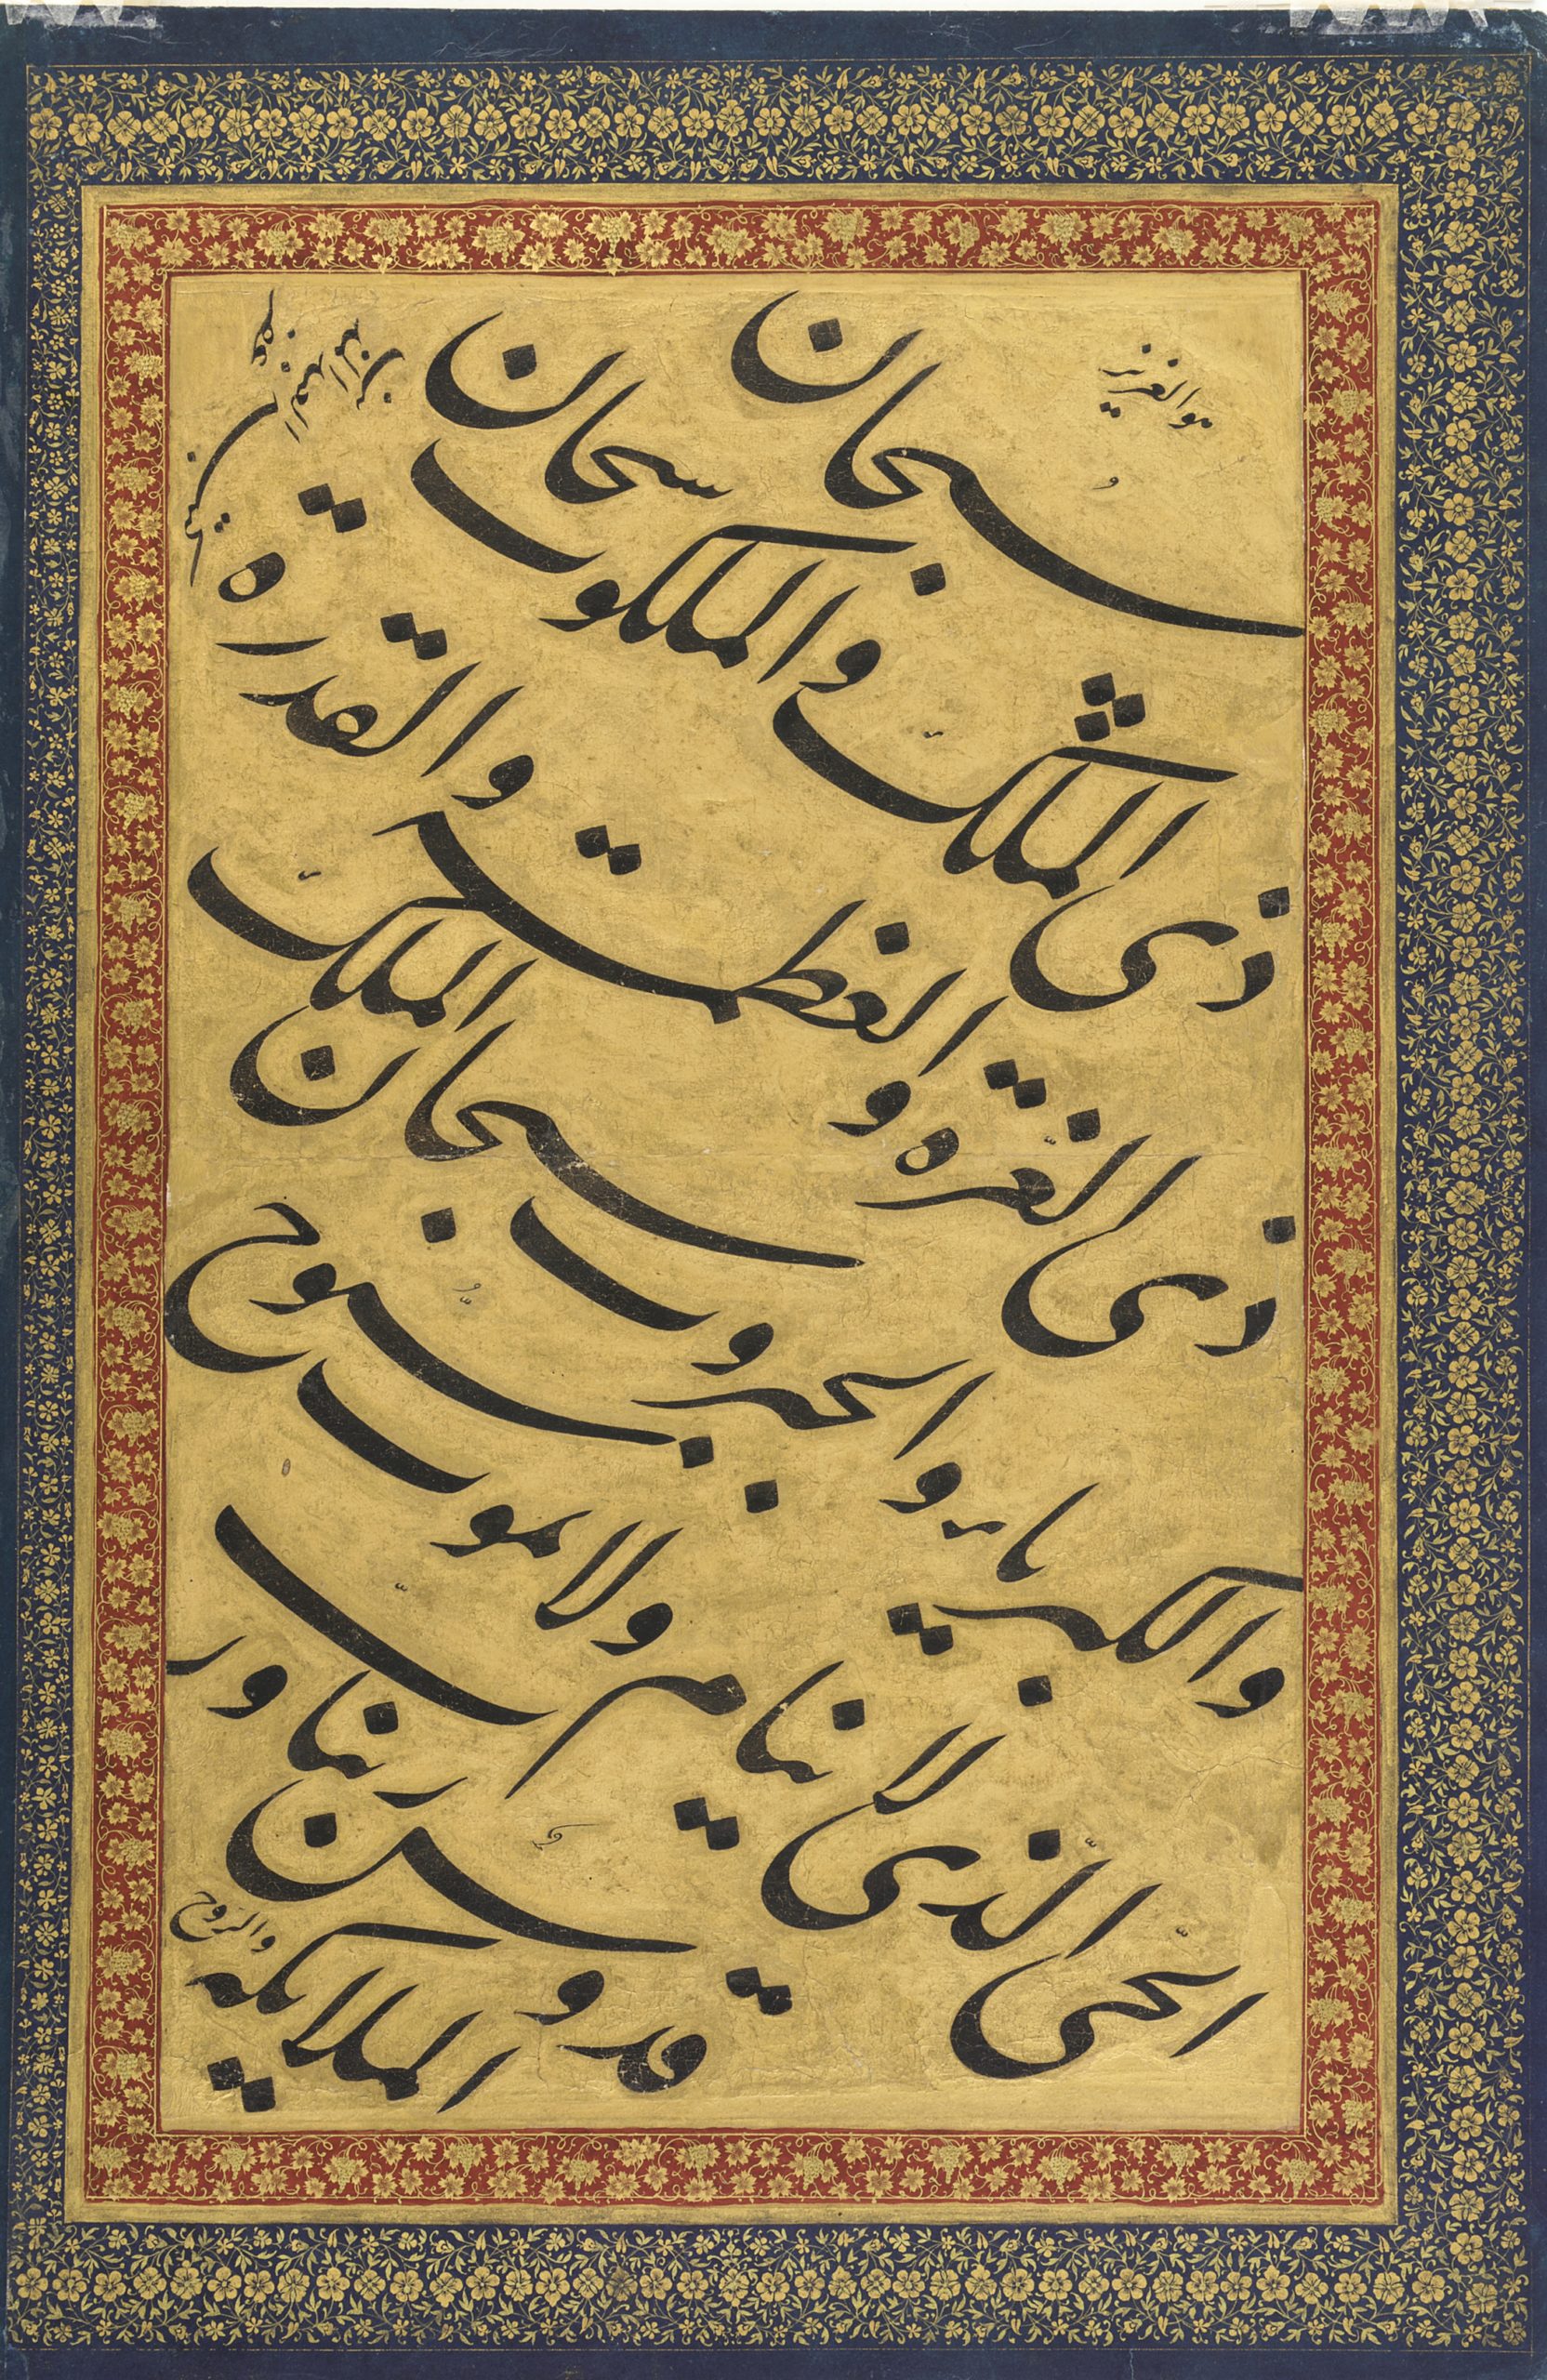 هو العزیز
سبحان
ذی الملک والملکوت سبحان
ذی العزه والعظمت والقدرة
والکبریاء والجبروت سبحان الملک
الحی الذی لا ینام ولا یموت سبوح
قدوس ربنا ورب
الملایکة والروح